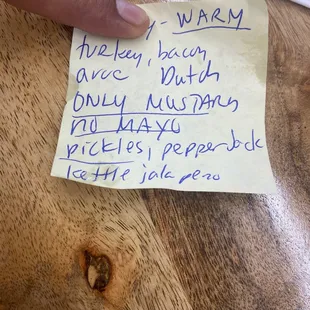 - WARM
turkey, bacon
avoc Dutch
ONLY MUSTARD
NO MAYO
pickles, pepperJack
kettle jalapeno